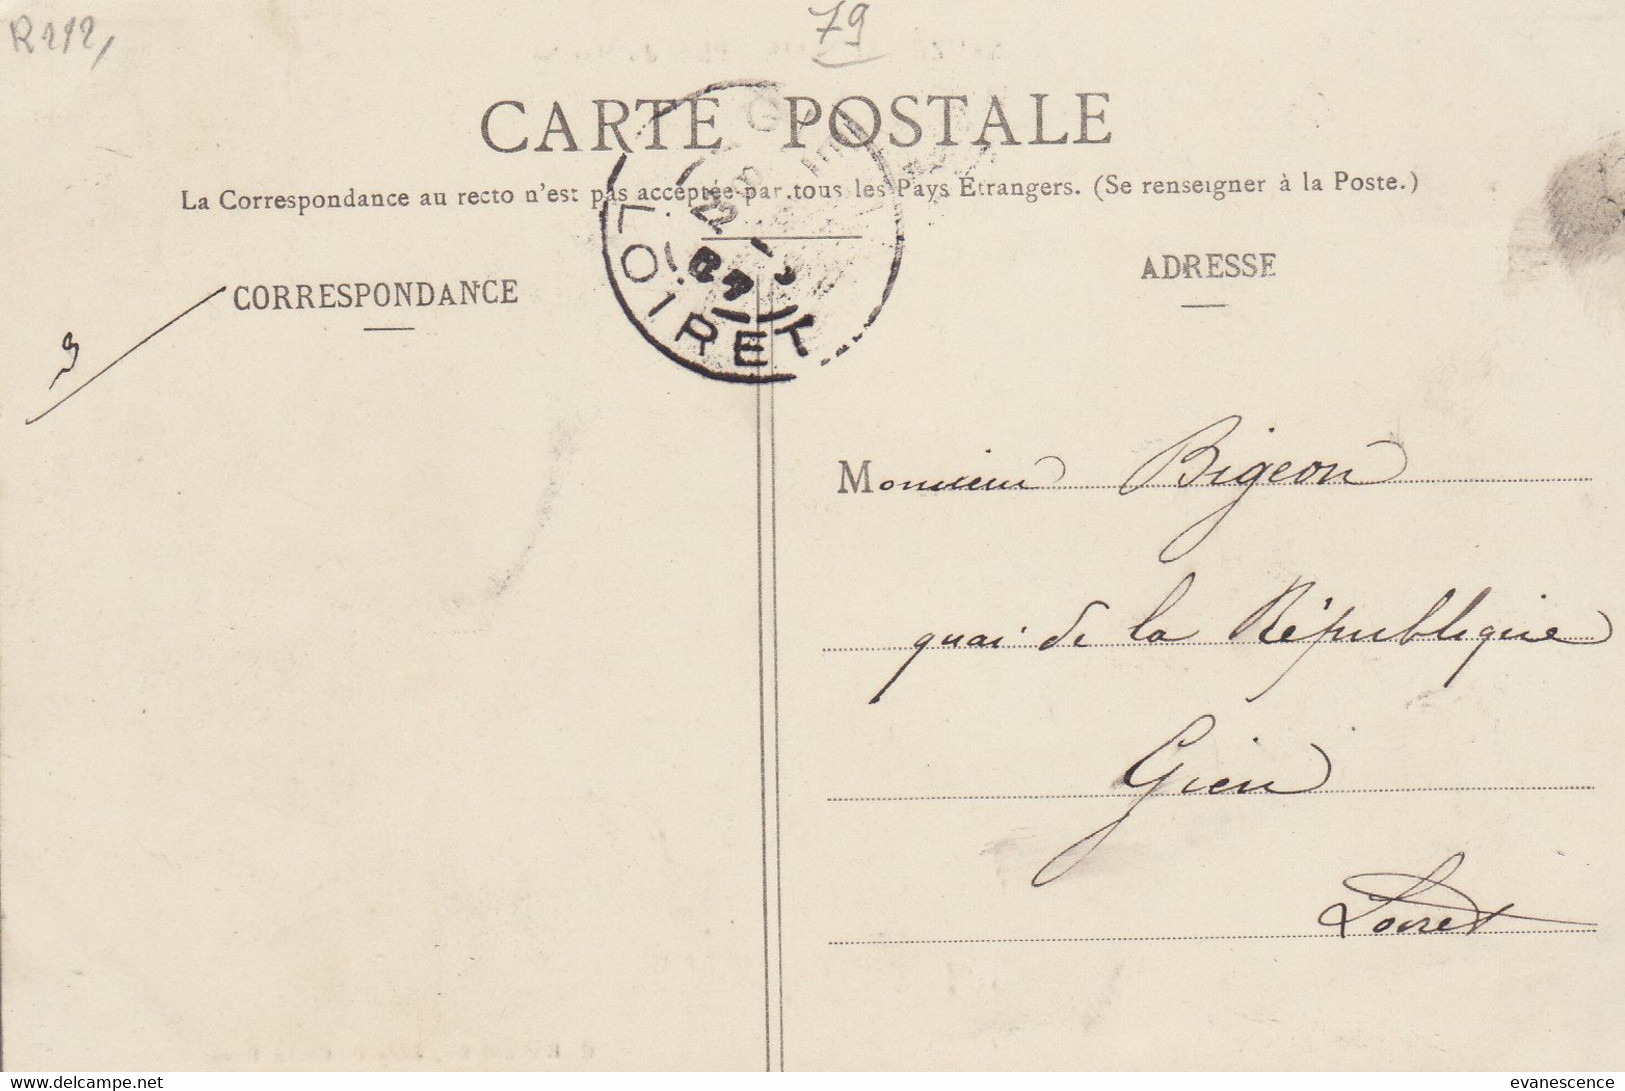 R212,
79
CARTE POSTALE
La Correspondance au recto n'est pas acceptée par tous les Pays Étrangers. (Se renseigner à la Poste.)
22
07
LOIRET
CORRESPONDANCE
ADRESSE
Monsieur Bigeon
quai de la République
Gien
Loiret
evanescence